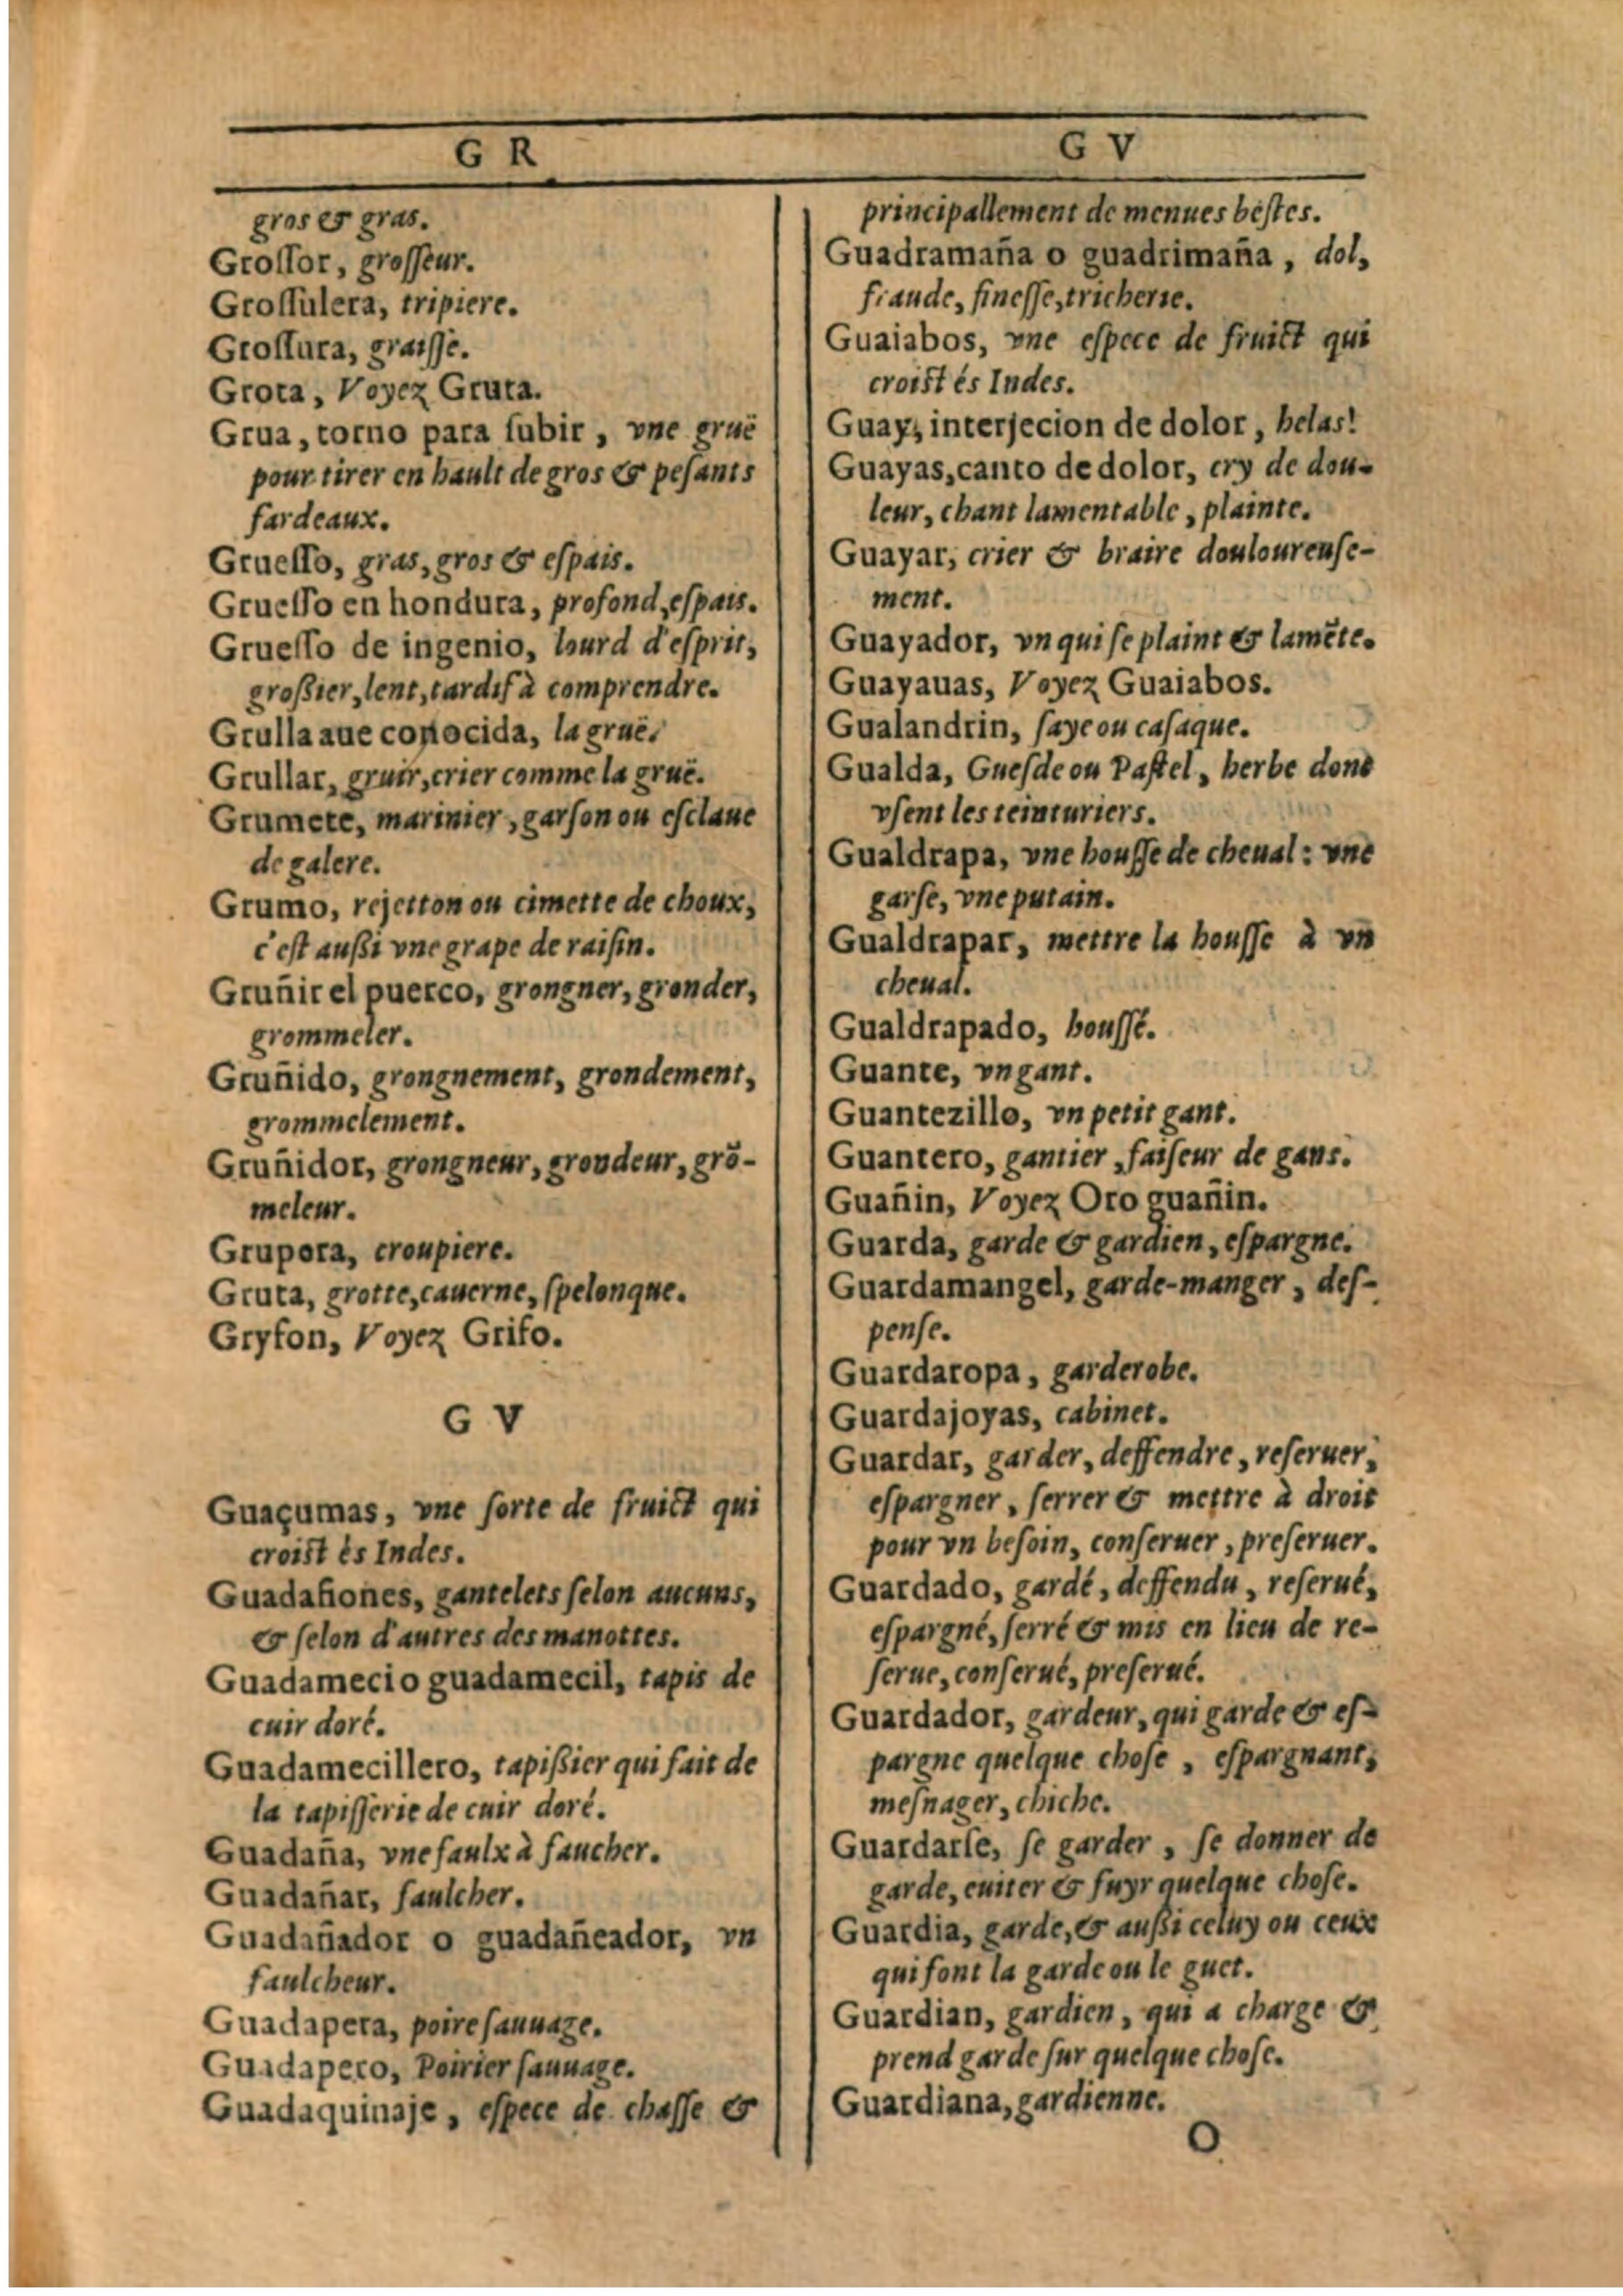 G R
gros & gras.
Grossor, grosseur.
Grossulera, tripiere.
Grossura, graisse.
Grota, Voyez Gruta.
Grua, torno para subir, vne gruë
pour tirer en hault de gros & pesants
fardeaux.
Gruesso, gras, gros & espais.
Gruesso en hondura, profond, espais.
Gruesso de ingenio, lourd d'esprit,
grossier, lent, tardif à comprendre.
Grulla aue conocida, la gruë.
Grullar, gruir, crier comme la gruë.
Grumete, marinier, garson ou esclaue
de galere.
Grumo, rejetton ou cimette de choux,
c'est aussi vne grape de raisin.
Gruñir el puerco, grongner, gronder,
grommeler.
Gruñido, grongnement, grondement,
grommelement.
Gruñidor, grongneur, grondeur, grõ-
meleur.
Grupera, croupiere.
Gruta, grotte, cauerne, spelonque.
Gryfon, Voyez Grifo.
G V
Guaçumas, vne sorte de fruict qui
croist és Indes.
Guadafiones, gantelets selon aucuns,
& selon d'autres des manottes.
Guadameci o guadamecil, tapis de
cuir doré.
Guadamecillero, tapissier qui fait de
la tapisserie de cuir doré.
Guadaña, vne faulx à faucher.
Guadañar, faulcher.
Guadañador o guadañeador, vn
faulcheur.
Guadapera, poire sauuage.
Guadapero, Poirier sauuage.
Guadaquinaje, espece de chasse &
G V
principallement de menues bestes.
Guadramaña o guadrimaña, dol,
fraude, finesse, tricherie.
Guaiabos, vne espece de fruict qui
croist és Indes.
Guay, interjecion de dolor, helas!
Guayas, canto de dolor, cry de dou-
leur, chant lamentable, plainte.
Guayar, crier & braire douloureuse-
ment.
Guayador, vn qui se plaint & lamẽte.
Guayauas, Voyez Guaiabos.
Gualandrin, saye ou casaque.
Gualda, Guesde ou Pastel, herbe dont
vsent les teinturiers.
Gualdrapa, vne housse de cheual: vne
garse, vne putain.
Gualdrapar, mettre la housse à vn
cheual.
Gualdrapado, houssé.
Guante, vn gant.
Guantezillo, vn petit gant.
Guantero, gantier, faiseur de gans.
Guañin, Voyez Oro guañin.
Guarda, garde & gardien, espargne.
Guardamangel, garde-manger, des-
pense.
Guardaropa, garderobe.
Guardajoyas, cabinet.
Guardar, garder, deffendre, reseruer,
espargner, serrer & mettre à droit
pour vn besoin, conseruer, preseruer.
Guardado, gardé, deffendu, reserué,
espargné, serré & mis en lieu de re-
serue, conserué, preserué.
Guardador, gardeur, qui garde & es-
pargne quelque chose, espargnant,
mesnager, chiche.
Guardarse, se garder, se donner de
garde, euiter & fuyr quelque chose.
Guardia, garde, & aussi celuy ou ceux
qui font la garde ou le guet.
Guardian, gardien, qui a charge &
prend garde sur quelque chose.
Guardiana, gardienne.
O